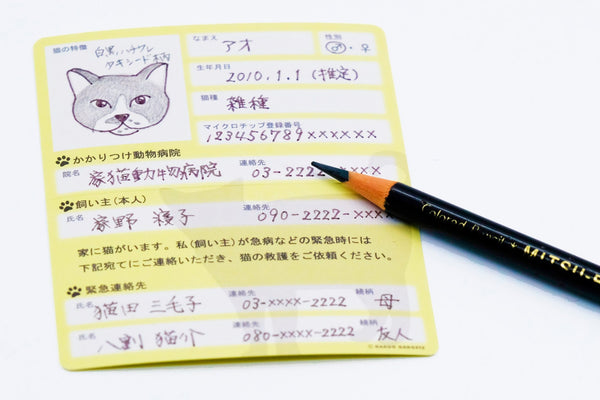 猫の特徴
白黒ハチワレ
タキシード柄
なまえ
アオ
性別
♂・♀
生年月日
2010.1.1 (推定)
猫種
雑種
マイクロチップ登録番号
123456789××××××
かかりつけ動物病院
院名 家猫動物病院 連絡先 03-2222-××××
飼い主(本人)
氏名 家野 猫子 連絡先 090-2222-××××
家に猫がいます。私(飼い主)が急病などの緊急時には
下記宛てにご連絡いただき、猫の救護をご依頼ください。
緊急連絡先
氏名 猫田 三毛子 連絡先 03-××××-2222 続柄 母
氏名 八割 猫介 連絡先 080-××××-2222 続柄 友人
Colored Pencil
MITSU